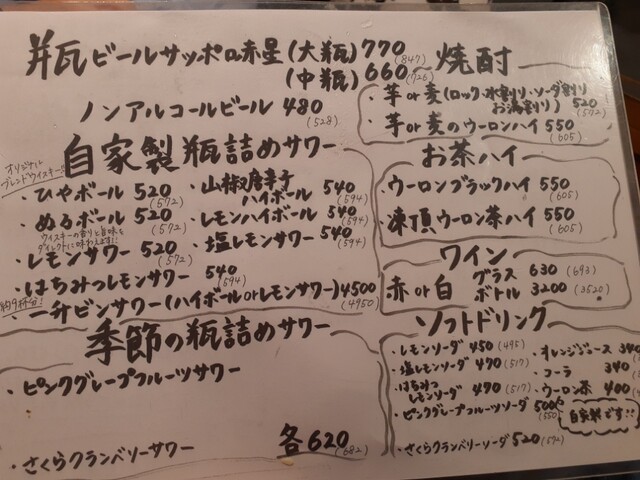 瓶ビールサッポロ赤星(大瓶)770(847)
(中瓶)660(726)
ノンアルコールビール 480(528)
自家製瓶詰めサワー
オリジナルブレンドウイスキー
・ひやボール 520(572)
・ぬるボール 520(572)
ウイスキーの香りと旨味を
ダイレクトに味わえます!!
・レモンサワー 520(572)
・はちみつレモンサワー 540(594)
・山椒唐辛子
ハイボール 540(594)
・レモンハイボール 540(594)
・塩レモンサワー 540(594)
約9杯分!
・一升ビンサワー(ハイボールorレモンサワー)4500(4950)
季節の瓶詰めサワー
・ピンクグレープフルーツサワー
・さくらクランベリーサワー
各620(682)
焼酎
・芋or麦(ロック・水割り・ソーダ割り
お湯割り) 520(572)
・芋or麦のウーロンハイ 550(605)
お茶ハイ
・ウーロンブラックハイ 550(605)
・凍頂ウーロン茶ハイ 550(605)
ワイン
赤or白
グラス 630(693)
ボトル 3200(3520)
ソフトドリンク
・レモンソーダ 450(495)
・塩レモンソーダ 470(517)
・はちみつ
レモンソーダ 470(517)
・ピンクグレープフルーツソーダ 500(550)
・さくらクランベリーソーダ 520(572)
・オレンジジュース 340
・コーラ 340
・ウーロン茶 400
自家製です!!